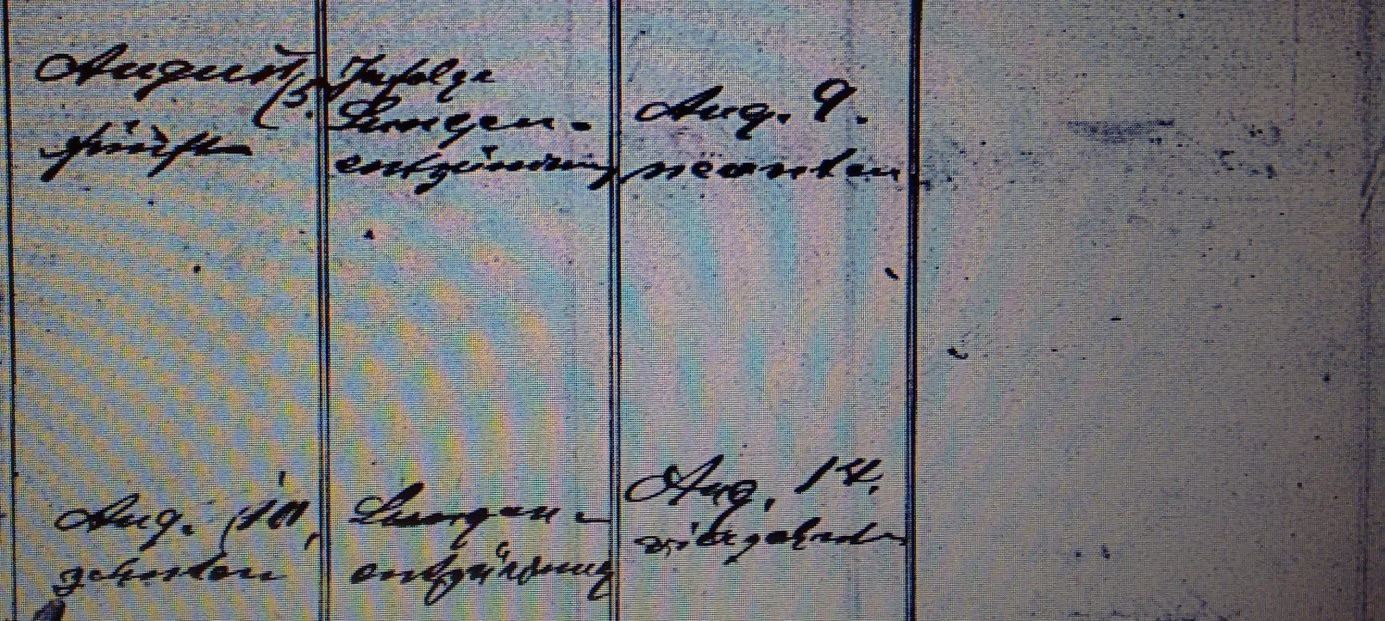 August (5.
fünften
Infolge
Lungen-
entzündung
Aug. 9.
neunten
Aug. (10,
zehnten
Lungen-
entzündung
Aug. 14.
vierzehnten